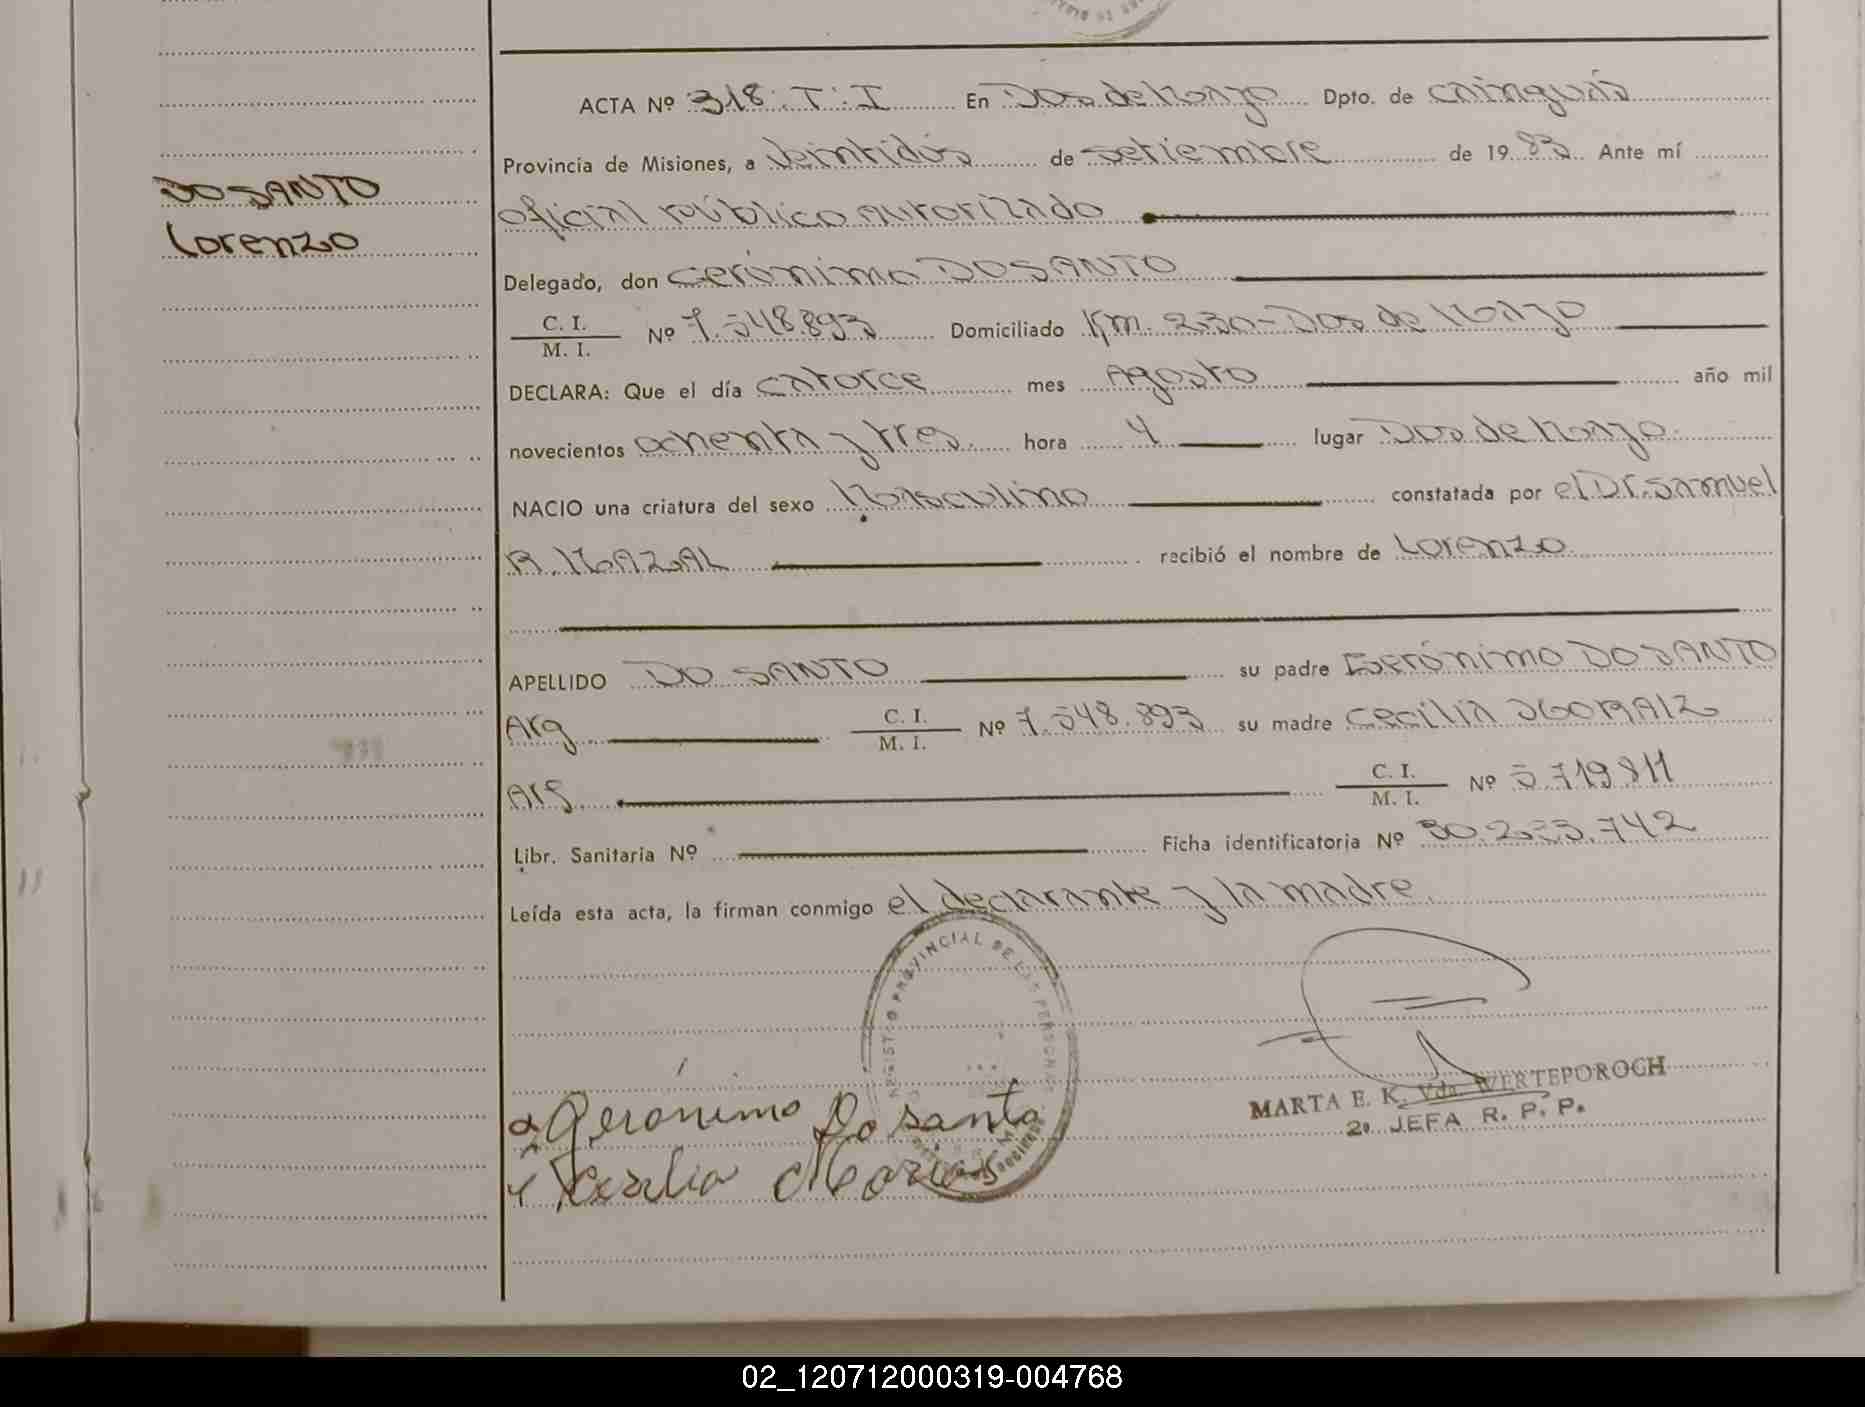 DO SANTO
Lorenzo
ACTA Nº 318. T: I En Dos de Mayo Dpto. de Cainguás
Provincia de Misiones, a veintidós de setiembre de 1983 Ante mí
oficial público autorizado
Delegado, don Gerónimo DO SANTO
C. I.
M. I.
Nº 7.548.893 Domiciliado Km. 230-Dos de Mayo
DECLARA: Que el día catorce mes Agosto año mil
novecientos ochenta y tres hora 4 lugar Dos de Mayo.
NACIO una criatura del sexo Masculino constatada por el Dr. Samuel
R. MAZAL recibió el nombre de Lorenzo
APELLIDO DO SANTO su padre Gerónimo DO SANTO
Arg C. I.
M. I. Nº 7.548.893 su madre Cecilia
Arg. C. I.
M. I. Nº 5.719.811
Libr. Sanitaria Nº Ficha identificatoria Nº 30.233.742
Leída esta acta, la firman conmigo el declarante y la madre.
REGISTRO PROVINCIAL DE LAS PERSONAS
Gerónimo Do santo
MARTA E. K. Vda. WERTEPOROCH
2ª JEFA R. P. P.
02_120712000319-004768